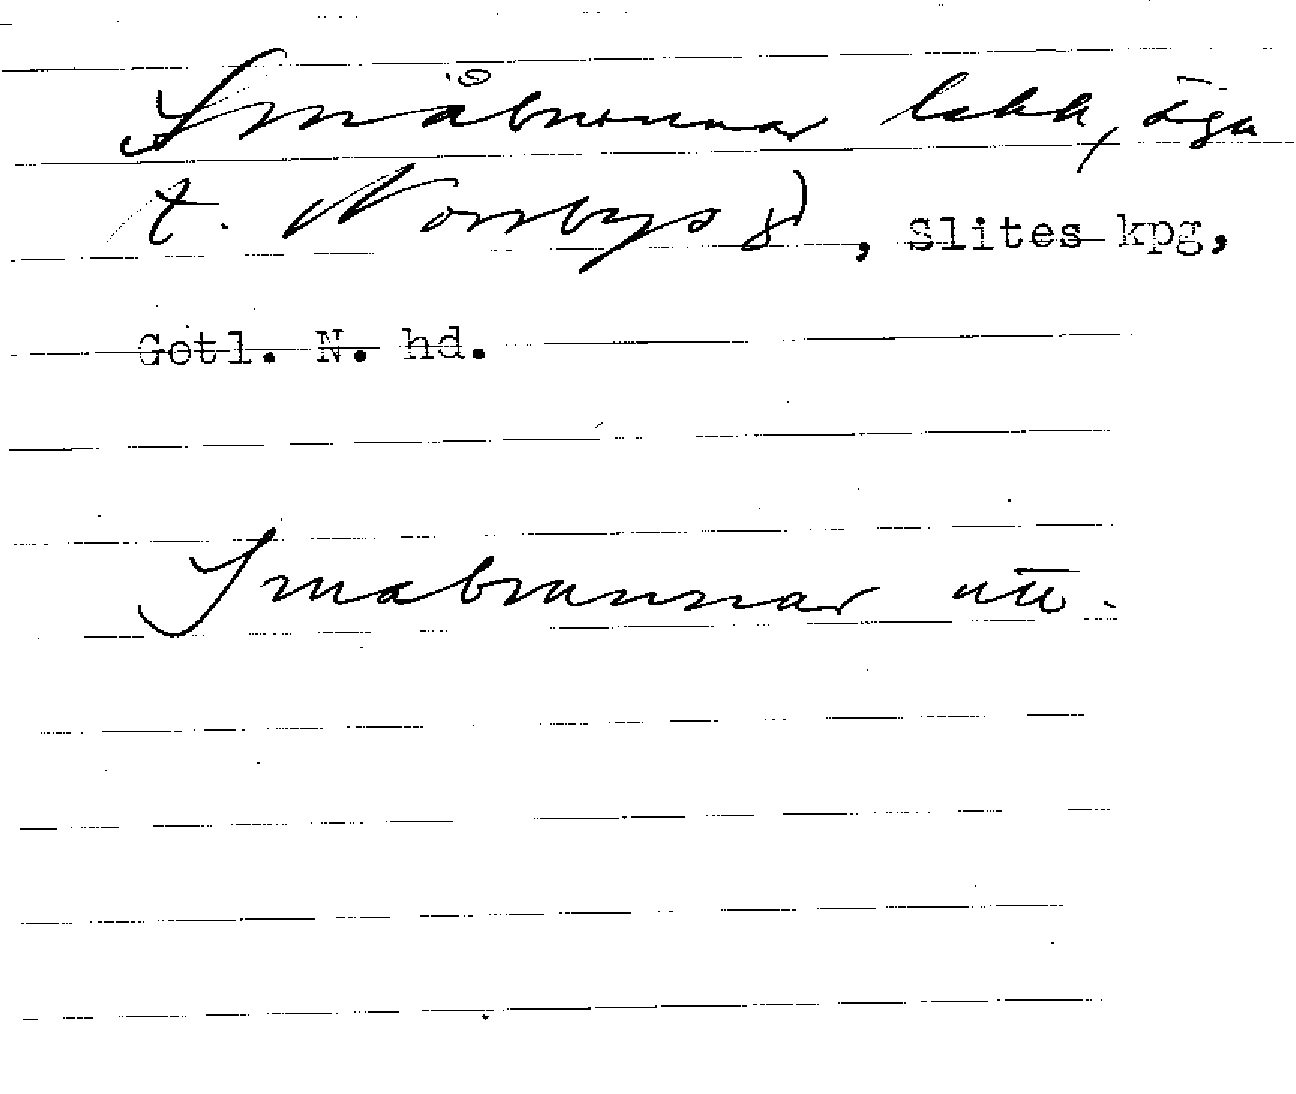 Småbrunnar lokk, äga
t. Norrbys 8), Slites kpg,
Gotl. N. hd.
Småbrunnar utt.